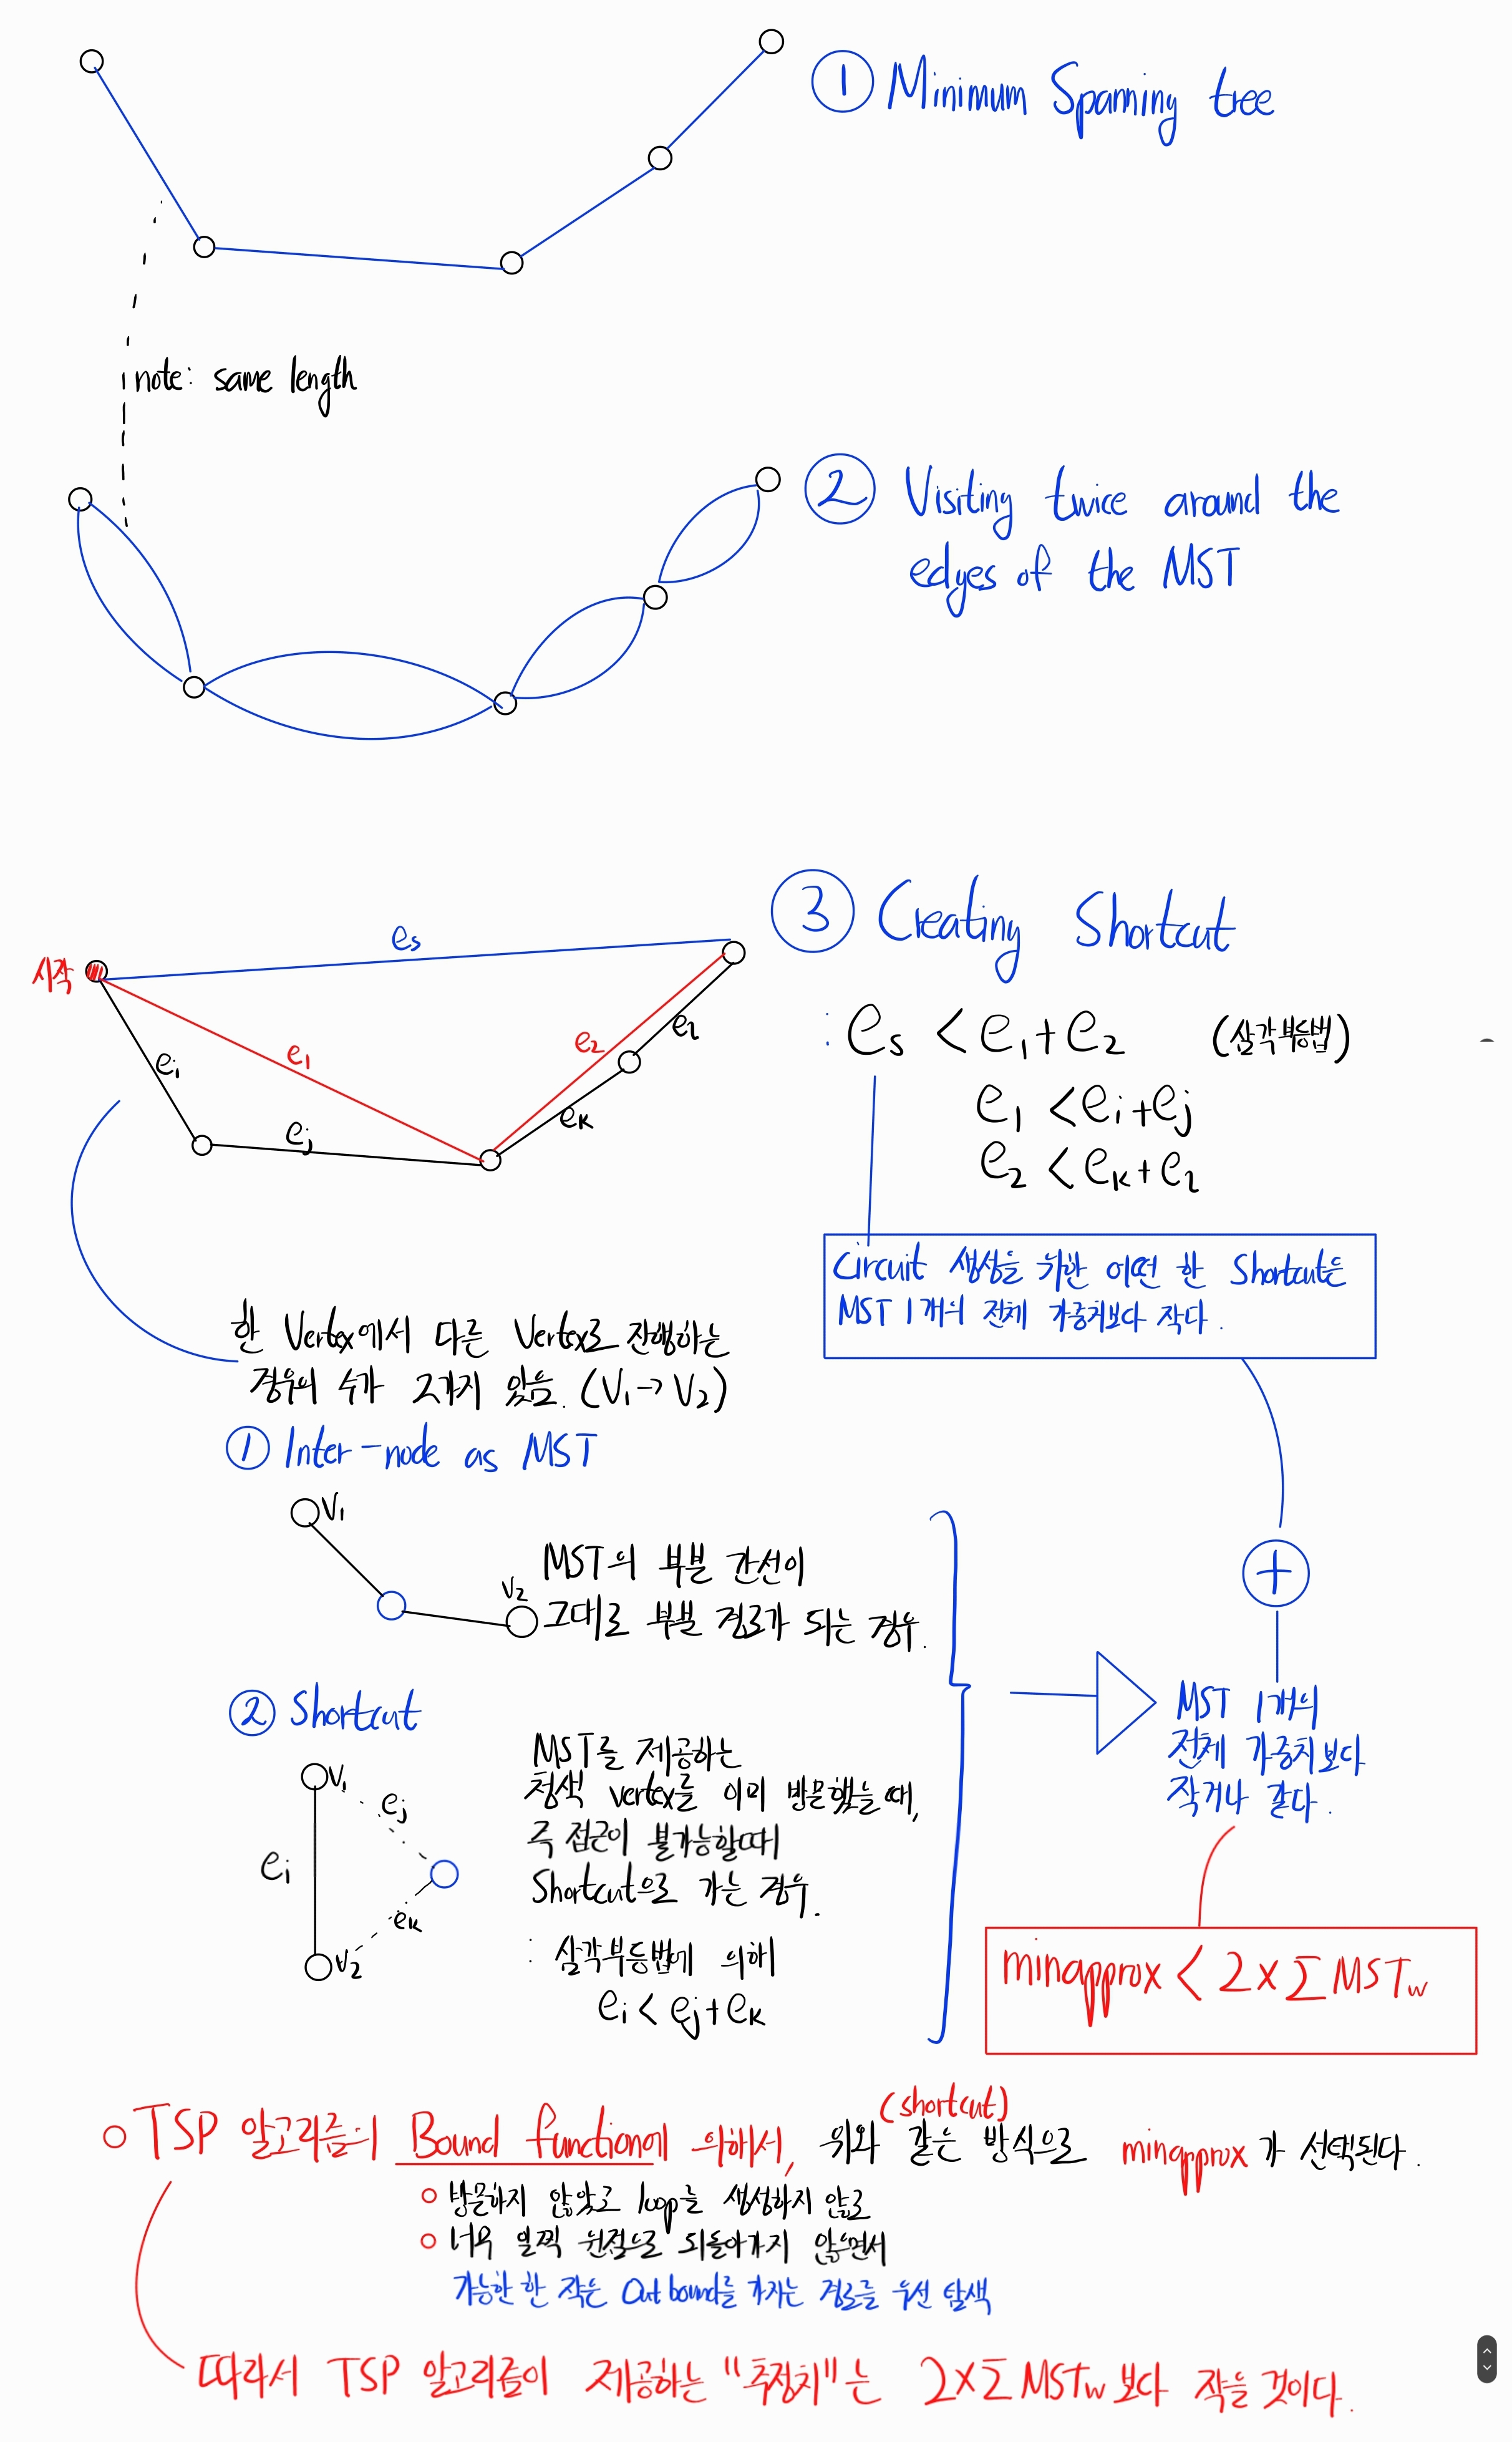 ① Minimum Spanning tree
note: same length
② Visiting twice around the
edges of the MST
③ Creating Shortcut
시작
es
e1
e2
el
ei
ej
ek
: es < e1+e2 (삼각부등법)
e1 < ei+ej
e2 < ek+el
Circuit 생성을 가한 어떤 한 Shortcut은
MST 1개의 전체 가중치보다 작다.
한 Vertex에서 다른 Vertex로 진행하는
경우의 수가 2가지 있음. (V1→V2)
① Inter-node as MST
V1
V2
MST의 부분 간선이
그대로 부분 경로가 되는 경우.
② Shortcut
V1
ej
ei
ek
V2
MST를 제공하는
청색 vertex를 이미 방문했을 때,
즉 접근이 불가능할때
Shortcut으로 가는 경우.
: 삼각부등법에 의해
ei < ej+ek
+
MST 1개의
전체 가중치보다
작거나 같다.
minapprox < 2×∑MSTw
(shortcut)
○ TSP 알고리즘의 Bound function에 의해서, 위와 같은 방식으로 minapprox가 선택된다.
○ 방문하지 않았고 loop를 생성하지 않고
○ 너무 일찍 원점으로 되돌아가지 않으면서
가능한 한 작은 Out bound를 가지는 경로를 우선 탐색
따라서 TSP 알고리즘이 제공하는 "추정치"는 2×∑MSTw보다 작을 것이다.